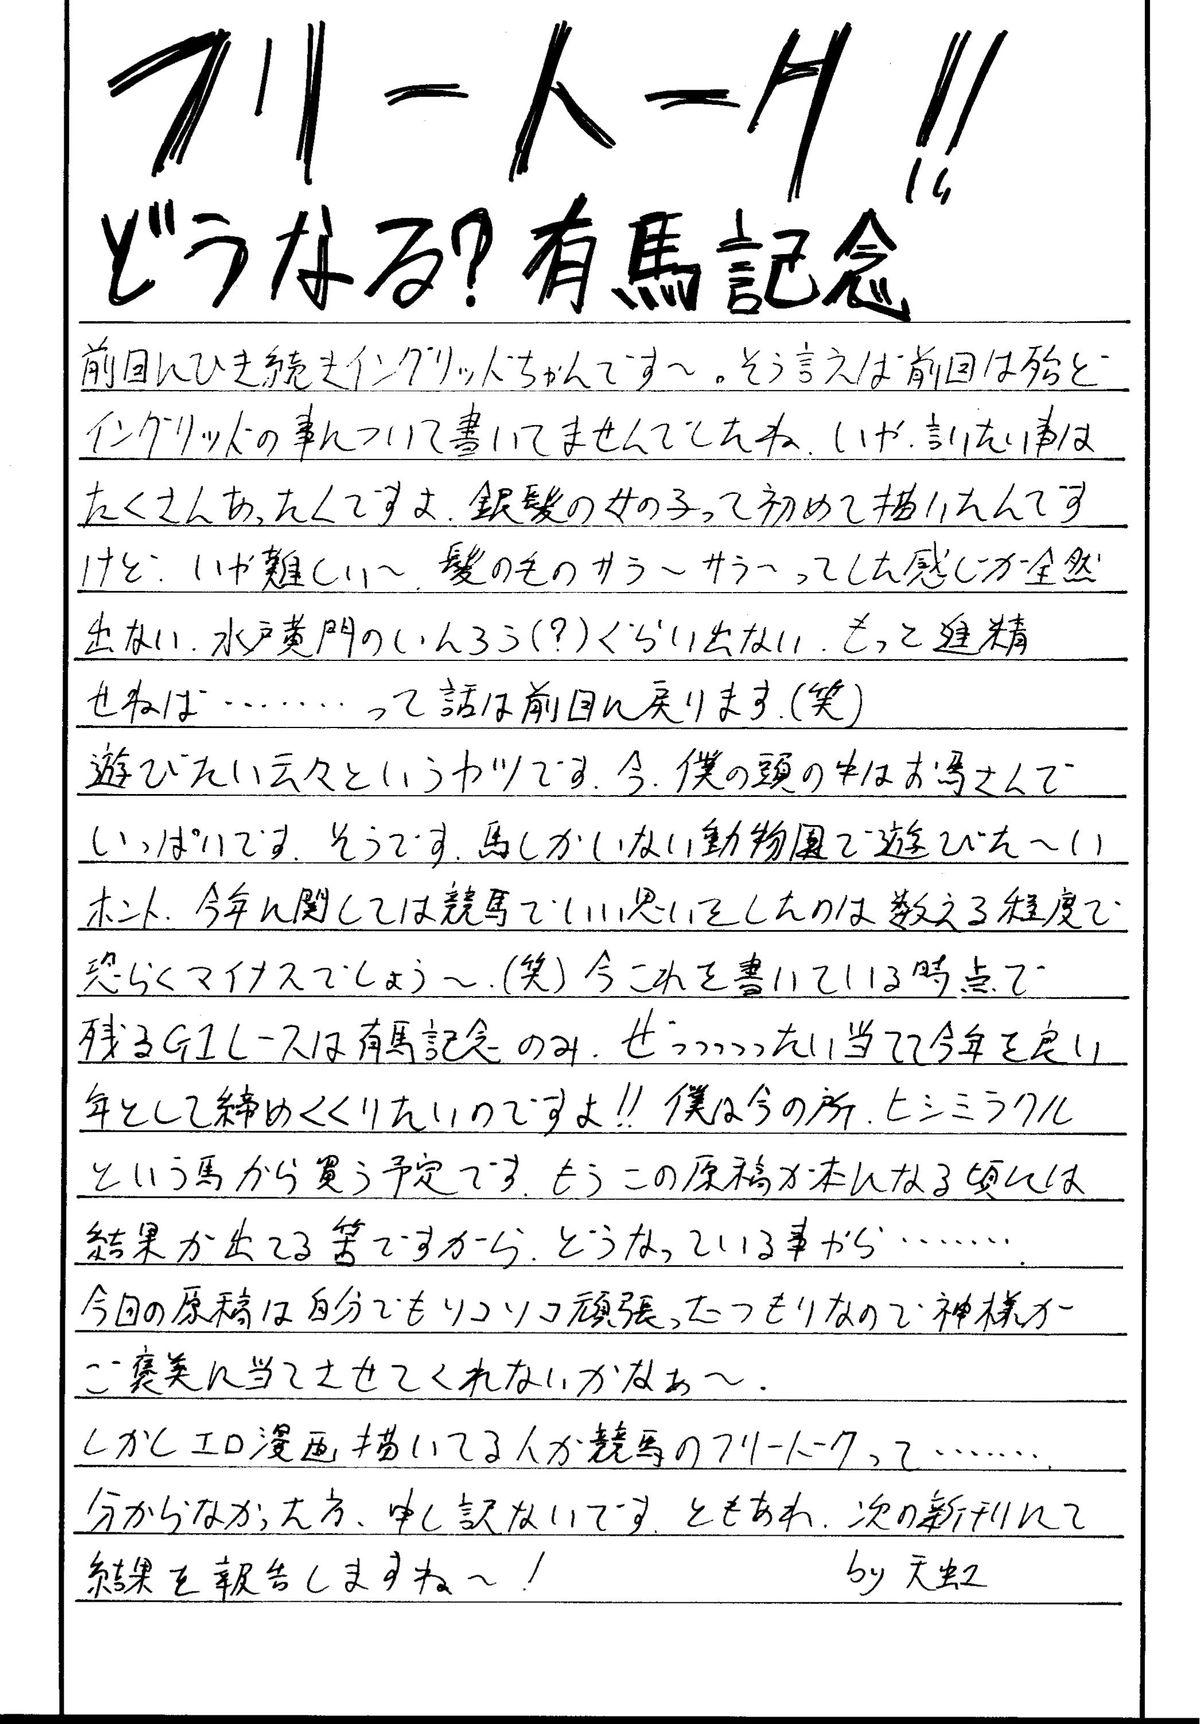 フリートーク!!
どうなる?有馬記念
前回にひき続きイングリッドちゃんです〜。そう言えば前回は殆ど
イングリッドの事について書いてませんでしたね、いや、言いたい事は
たくさんあったんですよ、銀髪の女の子って初めて描いたんです
けど、いや難しい〜、髪の毛のサラ〜サラ〜ってした感じが全然
出ない、水戸黄門のいんろう(?)ぐらい出ない、もっと進精
せねば………って話は前回に戻ります、(笑)
遊びたい云々というヤツです、今、僕の頭の中はお馬さんで
いっぱいです、そうです、馬しかいない動物園で遊びた〜い
ホント、今年に関しては競馬でいい思いをしたのは数える程度で
恐らくマイナスでしょう〜、(笑)今これを書いている時点で
残るG1レースは有馬記念のみ、ぜっっっっったい当てて今年を良い
年として締めくくりたいのですよ!!僕は今の所、ヒシミラクル
という馬から買う予定です、もうこの原稿が本になる頃には
結果が出てる筈ですから、どうなっている事やら………
今回の原稿は自分でもリコソコ頑張ったつもりなので神様が
ご褒美に当てさせてくれないかなぁ〜、
しかしエロ漫画描いてる人が競馬のフリートークって………
分からなかった方、申し訳ないです、ともあれ、次の新刊にて
結果を報告しますね〜!
by 天虹